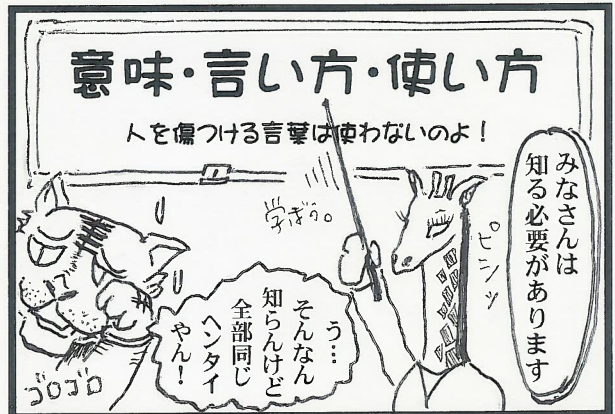 意味・言い方・使い方
人を傷つける言葉は使わないのよ！
みなさんは
知る必要があります
ピシッ
学ぼう。
う…
そんなん
知らんけど
全部同じ
ヘンタイ
やん！
ゴロゴロ